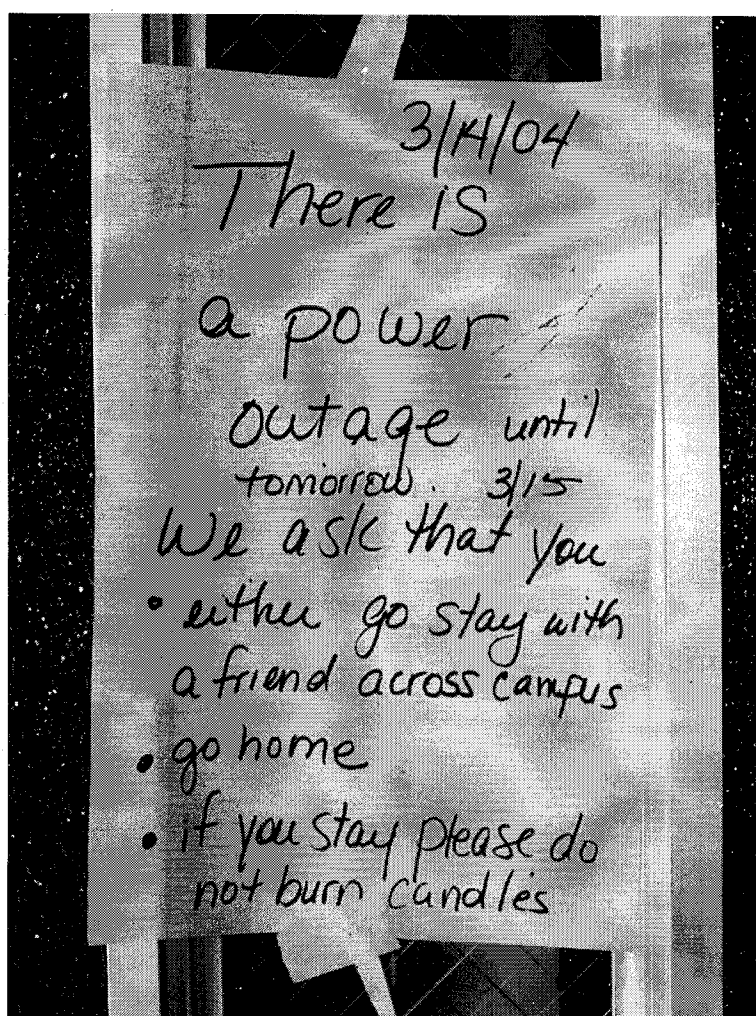 3/14/04
There is
a power
outage until
tomorrow. 3/15
We ask that you
• either go stay with
a friend across campus
• go home
• if you stay please do
not burn candles